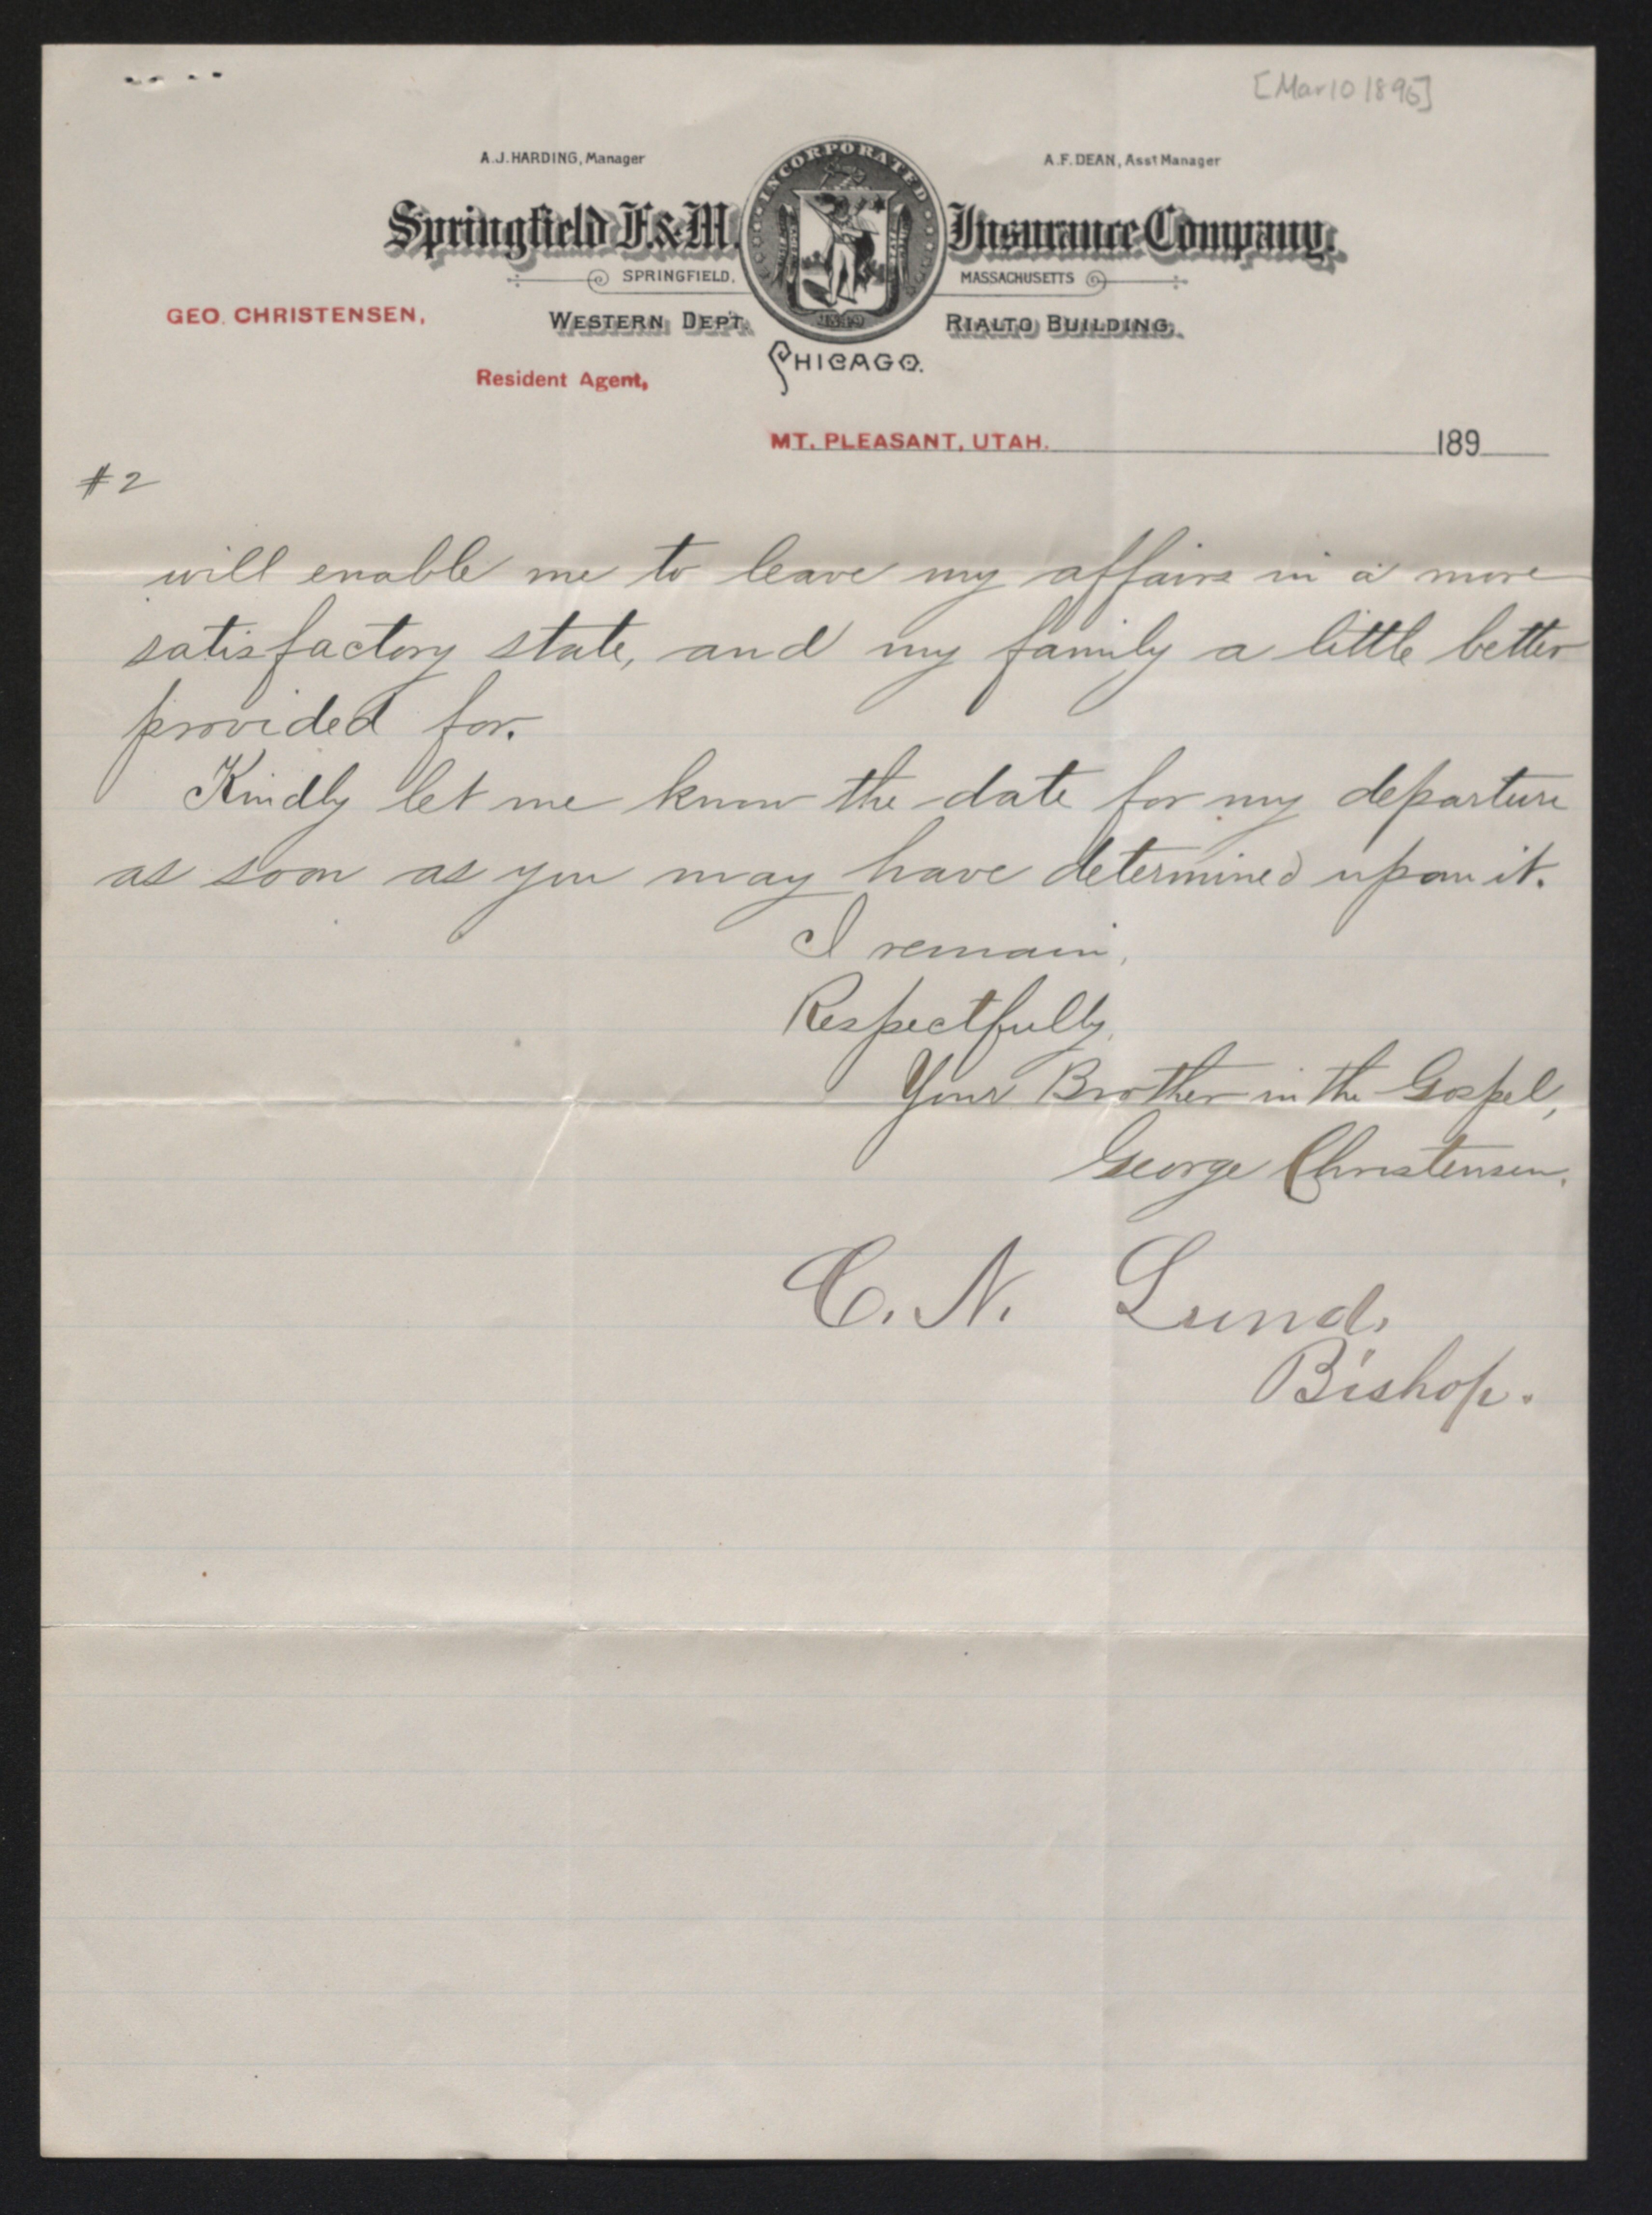 [Mar 10 1896]
A.J. HARDING, Manager
A.F. DEAN, Asst Manager
INCORPORATED
Springfield F. & M. Insurance Company.
SPRINGFIELD, MASSACHUSETTS
1849
GEO. CHRISTENSEN,
WESTERN DEP'T. RIALTO BUILDING.
CHICAGO.
Resident Agent,
MT. PLEASANT, UTAH. 189
#2
will enable me to leave my affairs in a more
satisfactory state, and my family a little better
provided for.
Kindly let me know the date for my departure
as soon as you may have determined upon it.
I remain,
Respectfully,
Your Brother in the Gospel,
George Christensen.
C. N. Lund.
Bishop.